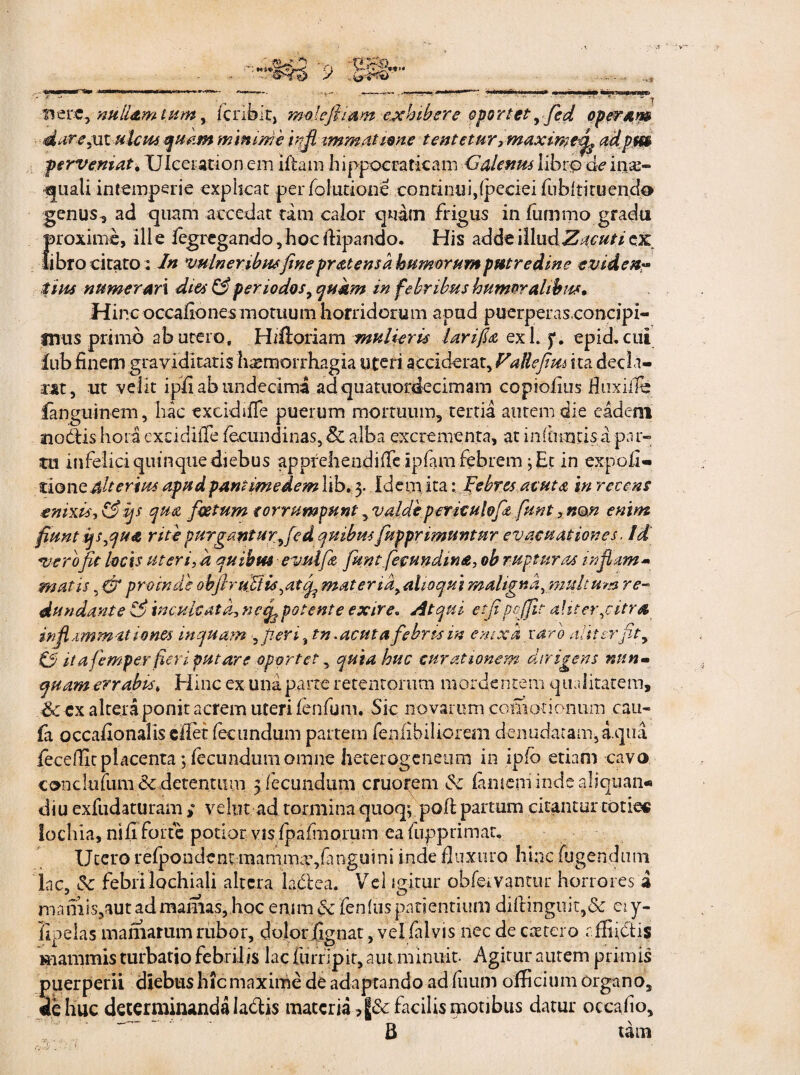 9
nere, nullam tum, scribit, molestiam exhibere oportet, sed operam
dare, ut ulcus quam minime inflammatione tentetur, maximeq; ad pus
perveniat. Ulcerationem istam hippocraticam Galenus libro de inæ-
quali intemperie explicat per solutione continui, speciei substituendo
genus, ad quam accedat tàm calor quàm frigus in summo gradu
proximè, ille segregando, hoc stipando. His adde illud Zacuti ex
libro citato: In vulneribus sine prætensâ humorum putredine eviden-
tius numerari dies & periodos, quàm in febribus humoralibus.
Hinc occasiones motuum horridorum apud puerperas concipi-
mus primò ab utero. Historiam mulieris larisæ ex l. 5. epid. cui
sub finem graviditatis hæmorrhagia uteri acciderat, Vallesius ita decla-
rat, ut velit ipsi ab undecimâ ad quatuordecimam copiosius fluxisse
sanguinem, hâc excidisse puerum mortuum, tertiâ autem die eâdem
noctis horâ excidisse secundinas, & alba excrementa, at insumtis à par-
tu infelici quinque diebus apprehendisse ipsam febrem; Et in exposi-
tione alterius apud pantimedem lib. 3. Idem ita: Febres acutæ in recens
enixis, & ijs quæ fœtum corrumpunt, valde periculosæ sunt, non enim
fiunt ijs, quæ rite purgantur, sed quibus supprimuntur evacuationes. Id
verò fit locis uteri, à quibus evulsæ sunt secundinæ, ob rupturas inflam-
matis, & proinde obstructis, atq; materiâ, alioqui malignâ, multum re-
dundante & inculcatâ, neq; potente exire. Atqui etsi possit aliter, citra
inflammationes inquam, fieri, tn. acuta febris in enixâ rarò aliter fit,
& ita semper fieri putare oportet, quia huc curationem dirigens nun-
quam errabis. Hinc ex unâ parte retentorum mordentem qualitatem,
& ex alterâ ponit acrem uteri sensum. Sic novarum comotionum cau-
sa occasionalis esset secundum partem sensibiliorem denudatam, à quâ
secessit placenta; secundum omne heterogeneum in ipso etiam cavo
conclusum & detentum; secundum cruorem & saniem inde aliquan-
diu exsudaturam; velut ad tormina quoq; post partum citantur toties
lochia, nisi forte potior vis spasmorum ea supprimat.
Utero respondent mammæ, sanguini inde fluxuro hinc sugendum
lac, & febri lochiali altera lactea. Vel igitur observantur horrores à
mamis, aut ad mamas, hoc enim & sensus patientium distinguit, & ery-
sipelas mamarum rubor, dolor signat, vel salvis nec de cætero afflictis
mammis turbatio febrilis lac surripit, aut minuit. Agitur autem primis
puerperii diebus hîc maximè de adaptando ad suum officium organo,
de huc determinandâ lactis materiâ, & facilis motibus datur occasio,
B tàm